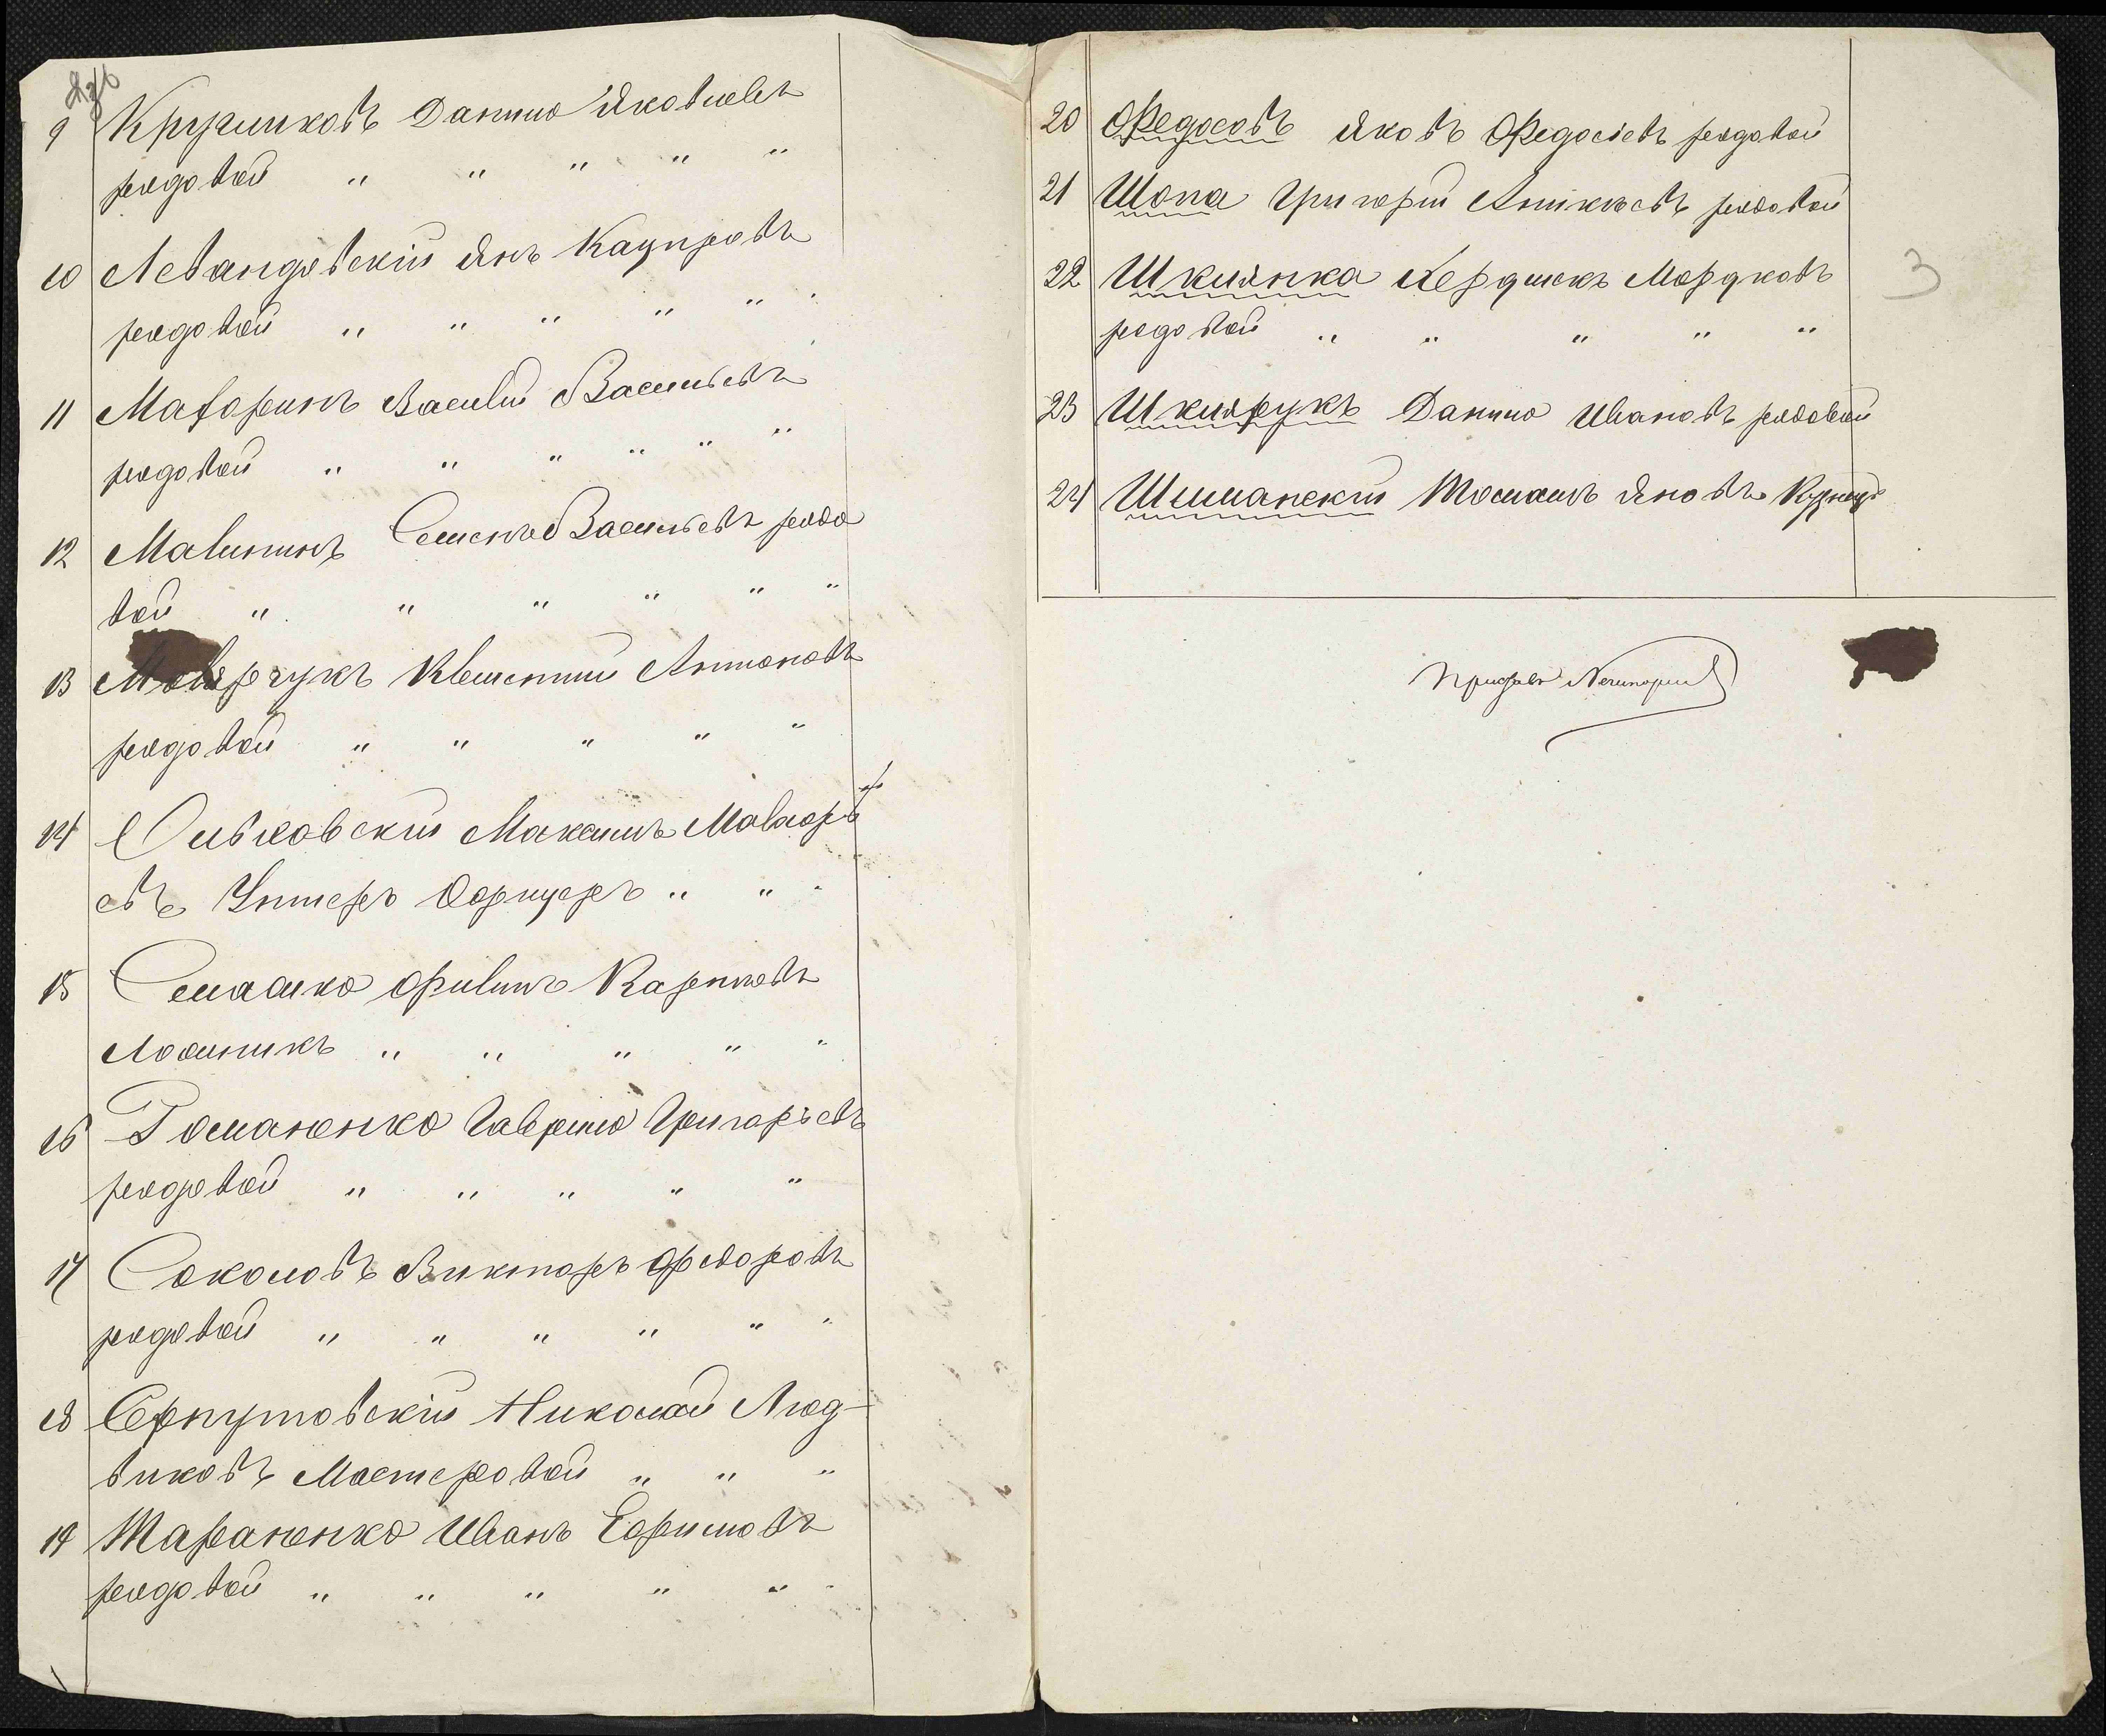 9 Кругликовъ Данило Яковлевъ
рядовой " " " " "
10 Левандовскій Янъ Кацпровъ
рядовой " " " " "
11 Маторинъ Василій Васильевъ
рядовой " " " " " "
12 Малининъ Семенъ Васильевъ рядо
вой " " " " " "
13 Климентій Антоновъ
рядовой " " " " "
14 Ольховскій Максимъ
евъ Унтеръ Офицеръ " " "
15 Семашко Филипъ Карповъ
" " " " "
16 Романенко Гаврило Григорьевъ
рядовой " " " " "
17 Соколовъ Викторъ Федоровъ
рядовой " " " " " "
18 Серпутовскій Николай Люд-
виковъ Мастеровой " " "
19 Тараненко Иванъ Ефимовъ
рядовой " " " " " "
20 Федосовъ Яковъ Федосіевъ рядовой
21 Шопа Григорій рядовой
22 Шклянка Мордковъ
рядовой " " " " "
3
23 Шклярукъ Данило Ивановъ рядовой
24 Шиманскій Томашъ Яновъ